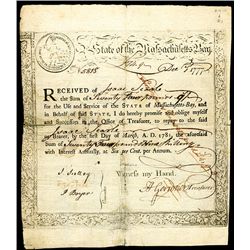 State of the Massachusetts-Bay,
No 5815
Dec 1st 1777
RECEIVED of Isaac Searle
the Sum of Seventy Four pounds
for the Use and Service of the STATE of Massachusetts-Bay, and
in Behalf of said STATE, I do hereby promise and oblige myself
and Successors in the Office of Treasurer, to repay to the said
Isaac Searle
or Bearer, by the first Day of March, A. D. 1781 the aforesaid
Sum of Seventy Four pound Shillings
with Interest Annually, at Six per Cent. per Annum.
Witness my Hand,
Treasurer